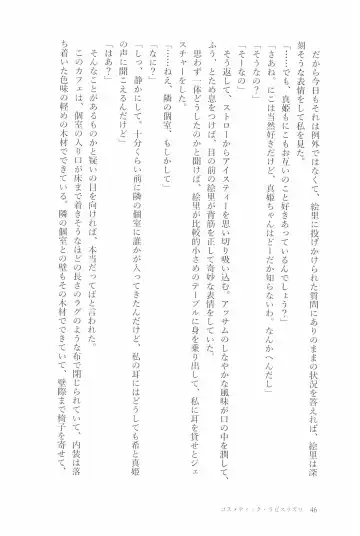 だから今日もそれは例外ではなくて、絵里に投げかけられた質問にありのままの状況を答えれば、絵里は深
刻そうな表情をして私を見た。
「……でも、真姫もにこもお互いのこと好きあっているんでしょう？」
「さあね。にこは当然好きだけど、真姫ちゃんはどーだか知らないわ。なんかへんだし」
「そうなの？」
「そーなの」
そう返して、ストローからアイスティーを思い切り吸い込む。アッサムのしなやかな風味が口の中を潤して、
ふう、とため息をつけば、目の前の絵里が背筋を正して奇妙な表情をしていた。
思わず一体どうしたのかと聞けば、絵里が比較的小さめのテーブルに身を乗り出して、私に耳を貸せとジェ
スチャーをした。
「……ねえ、隣の個室、もしかして」
「なに？」
「しっ、静かにして。十分くらい前に隣の個室に誰かが入ってきたんだけど、私の耳にはどうしても希と真姫
の声に聞こえるんだけど」
「はあ？」
そんなことがあるものかと疑いの目を向ければ、本当だってばと言われた。
このカフェは、個室の入り口が床まで着きそうなほどの長さのラグのような布で閉じられていて、内装は落
ち着いた色味の軽めの木材でできている。隣の個室との壁もその木材でできていて、壁際まで椅子を寄せて、
コスメティック・ラピスラズリ 46